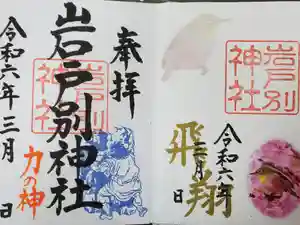 奉拝
岩戸別神社
岩戸別
神社
力の神
令和六年三月 日
岩戸別
神社
飛翔
令和六年
三月 日